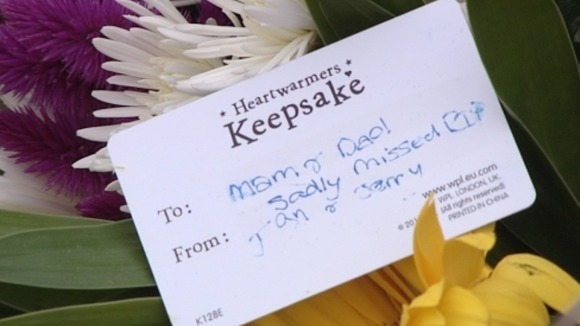 Heartwarmers
Keepsake
To: Mam & Dad!
Sadly missed RIP
From: Jan & Gerry
www.wpl.eu.com
WPL LONDON, UK.
(All rights reserved)
PRINTED IN CHINA
K128E